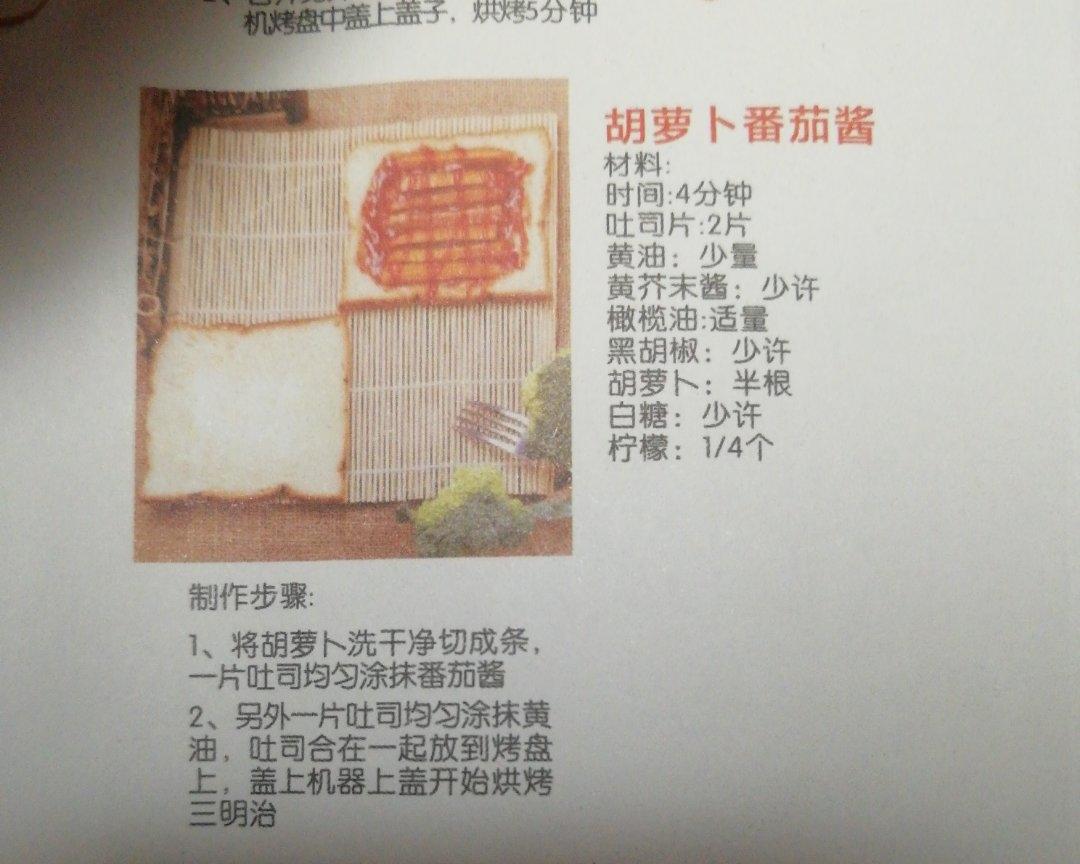 机烤盘中盖上盖子，烘烤5分钟
胡萝卜番茄酱
材料:
时间:4分钟
吐司片:2片
黄油：少量
黄芥末酱：少许
橄榄油:适量
黑胡椒：少许
胡萝卜：半根
白糖：少许
柠檬：1/4个
制作步骤:
1、将胡萝卜洗干净切成条，
一片吐司均匀涂抹番茄酱
2、另外一片吐司均匀涂抹黄
油，吐司合在一起放到烤盘
上，盖上机器上盖开始烘烤
三明治